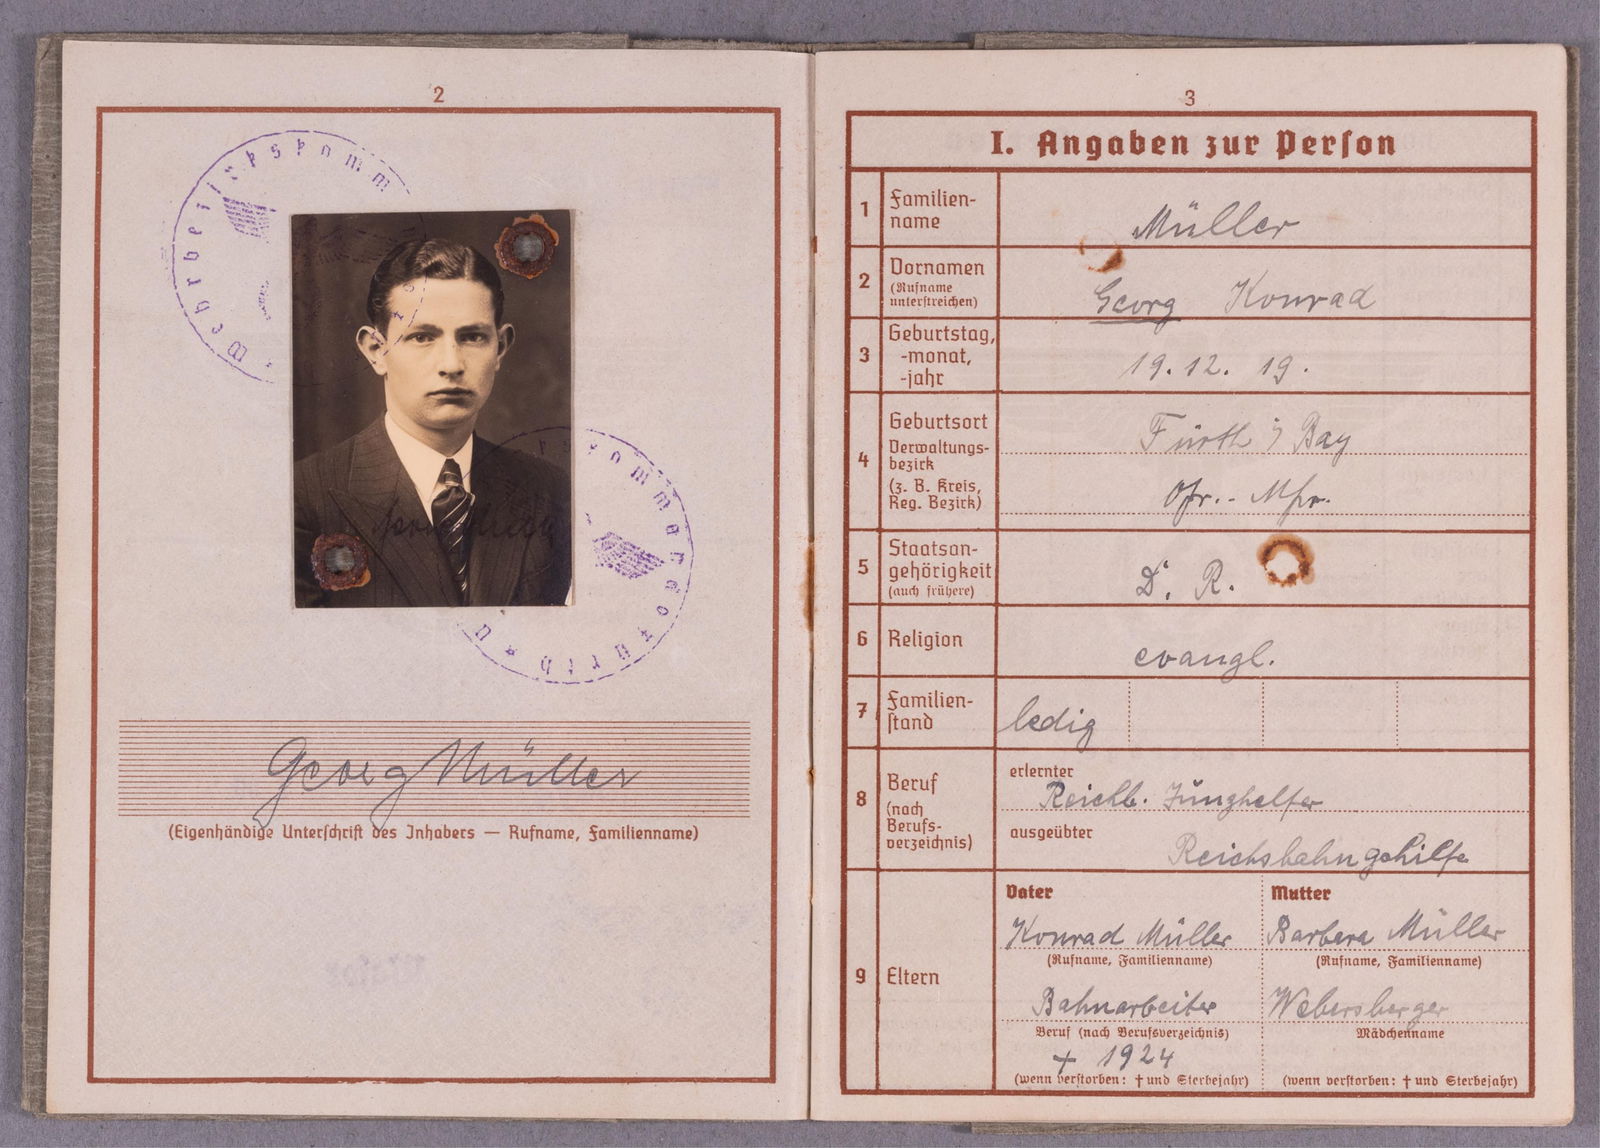 2
Wehrbezirkskomm
kommando Fürth
Georg Müller
(Eigenhändige Unterschrift des Inhabers — Rufname, Familienname)
3
I. Angaben zur Person
1 Familien-
name
Müller
2 Vornamen
(Rufname
unterstreichen)
Georg Konrad
3 Geburtstag,
-monat,
-jahr
19. 12. 19.
4 Geburtsort
Verwaltungs-
bezirk
(z. B. Kreis,
Reg. Bezirk)
Fürth i/ Bay
Ofr. - Mfr.
5 Staatsan-
gehörigkeit
(auch frühere)
D. R.
6 Religion
evangl.
7 Familien-
stand
ledig
8 Beruf
(nach
Berufs-
verzeichnis)
erlernter
Reichb. Junghelfer
ausgeübter
Reichsbahngehilfe
9 Eltern
Vater Mutter
Konrad Müller Barbara Müller
(Rufname, Familienname) (Rufname, Familienname)
Bahnarbeiter Webersberger
Beruf (nach Berufsverzeichnis) Mädchenname
+ 1924
(wenn verstorben: † und Sterbejahr) (wenn verstorben: † und Sterbejahr)